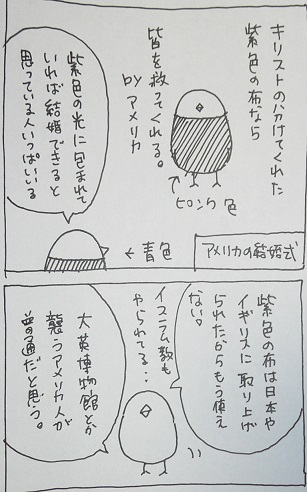 キリストの分けてくれた
紫色の布なら
皆を救ってくれる。
by アメリカ
ピンク色
紫色の光に包まれて
いれば結婚できると
思っている人いっぱいいる
青色
アメリカの結婚式
紫色の布は日本や
イギリスに取り上げ
られたからもう使え
ない。
イスラム教も
やられてる・・
大英博物館とか
襲うアメリカ人が
普通だと思う。